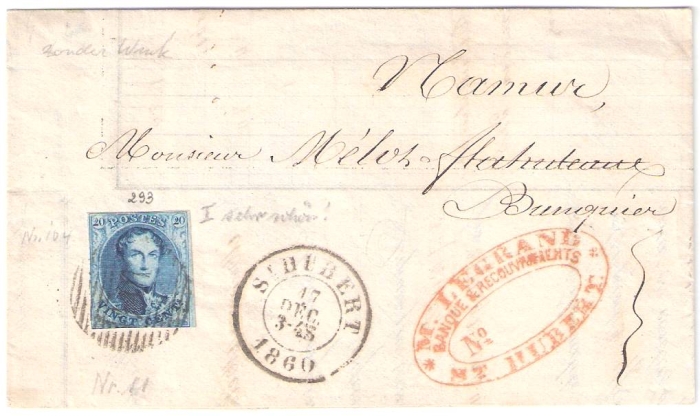 zonder Wuk
Namur,
Monsieur Mélot
Banquier
293
I sehr schön!
Nr. 104
20 POSTES 20
VINGT CENTS
ST HUBERT
17
DEC.
3-4S
1860
* M. LEGRAND *
BANQUE & RECOUVREMENTS
No
ST HUBERT
Nr. 61